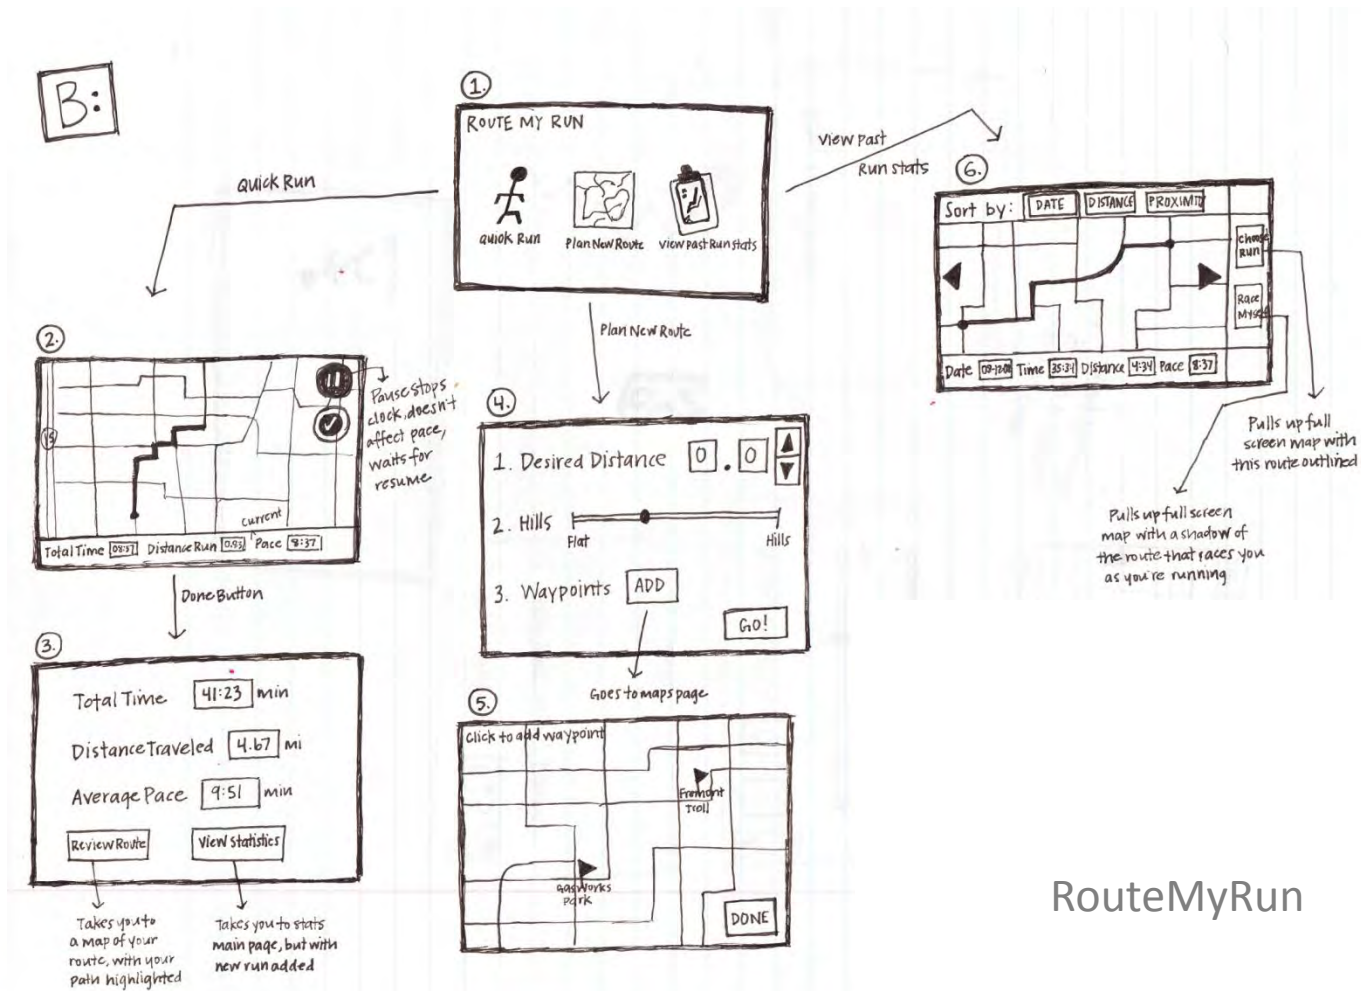 B:
1.
ROUTE MY RUN
Quick Run
Plan New Route
View Past Run Stats
Quick Run
Plan New Route
View Past
Run Stats
2.
Total Time 08:37 Distance Run 0.93 Pace 8:37
current
Pause stops
clock, doesn't
affect pace,
waits for
resume
Done Button
3.
Total Time 41:23 min
Distance Traveled 4.67 mi
Average Pace 9:51 min
Review Route
View Statistics
Takes you to
a map of your
route, with your
path highlighted
Takes you to stats
main page, but with
new run added
4.
1. Desired Distance 0.0
2. Hills
Flat
Hills
3. Waypoints ADD
GO!
Goes to maps page
5.
Click to add waypoint
Fremont
Troll
Gas Works
Park
DONE
6.
Sort by: DATE DISTANCE
Choose
Run
Race
Date Time Distance 4:34 Pace 8:37
Pulls up full
screen map with
this route outlined
Pulls up full screen
map with a shadow of
the route that races you
as you're running
RouteMyRun